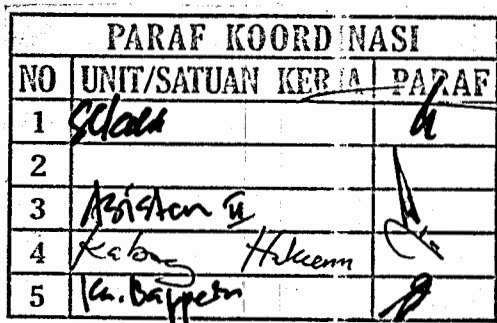 PARAF KOORDINASI
NO UNIT/SATUAN KERJA PARAF
1 Sekda
2
3 Asisten II
4 Kabag Hukum
5 Ka. Bappeda